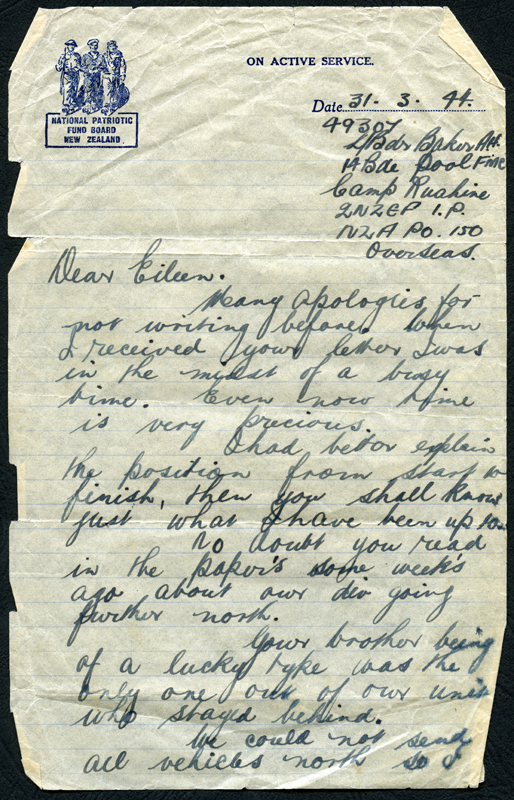 ON ACTIVE SERVICE.
NATIONAL PATRIOTIC
FUND BOARD
NEW ZEALAND
Date 31. 3. 44.
49307
L/Bdr Baker Att.
14 Bde Pool FMC
Camp Ruahine
2NZEF I.P.
NZA PO. 150
Overseas.
Dear Eileen.
Many apologies for
not writing before. When
I received your letter I was
in the midst of a busy
time. Even now time
is very precious.
I had better explain
the position from start to
finish, then you shall know
just what I have been up to.
No doubt you read
in the paper's some week's
ago about our div going
further north.
Your brother being
of a lucky tyke was the
only one out of our unit
who stayed behind.
We could not send
all vehicles north so I